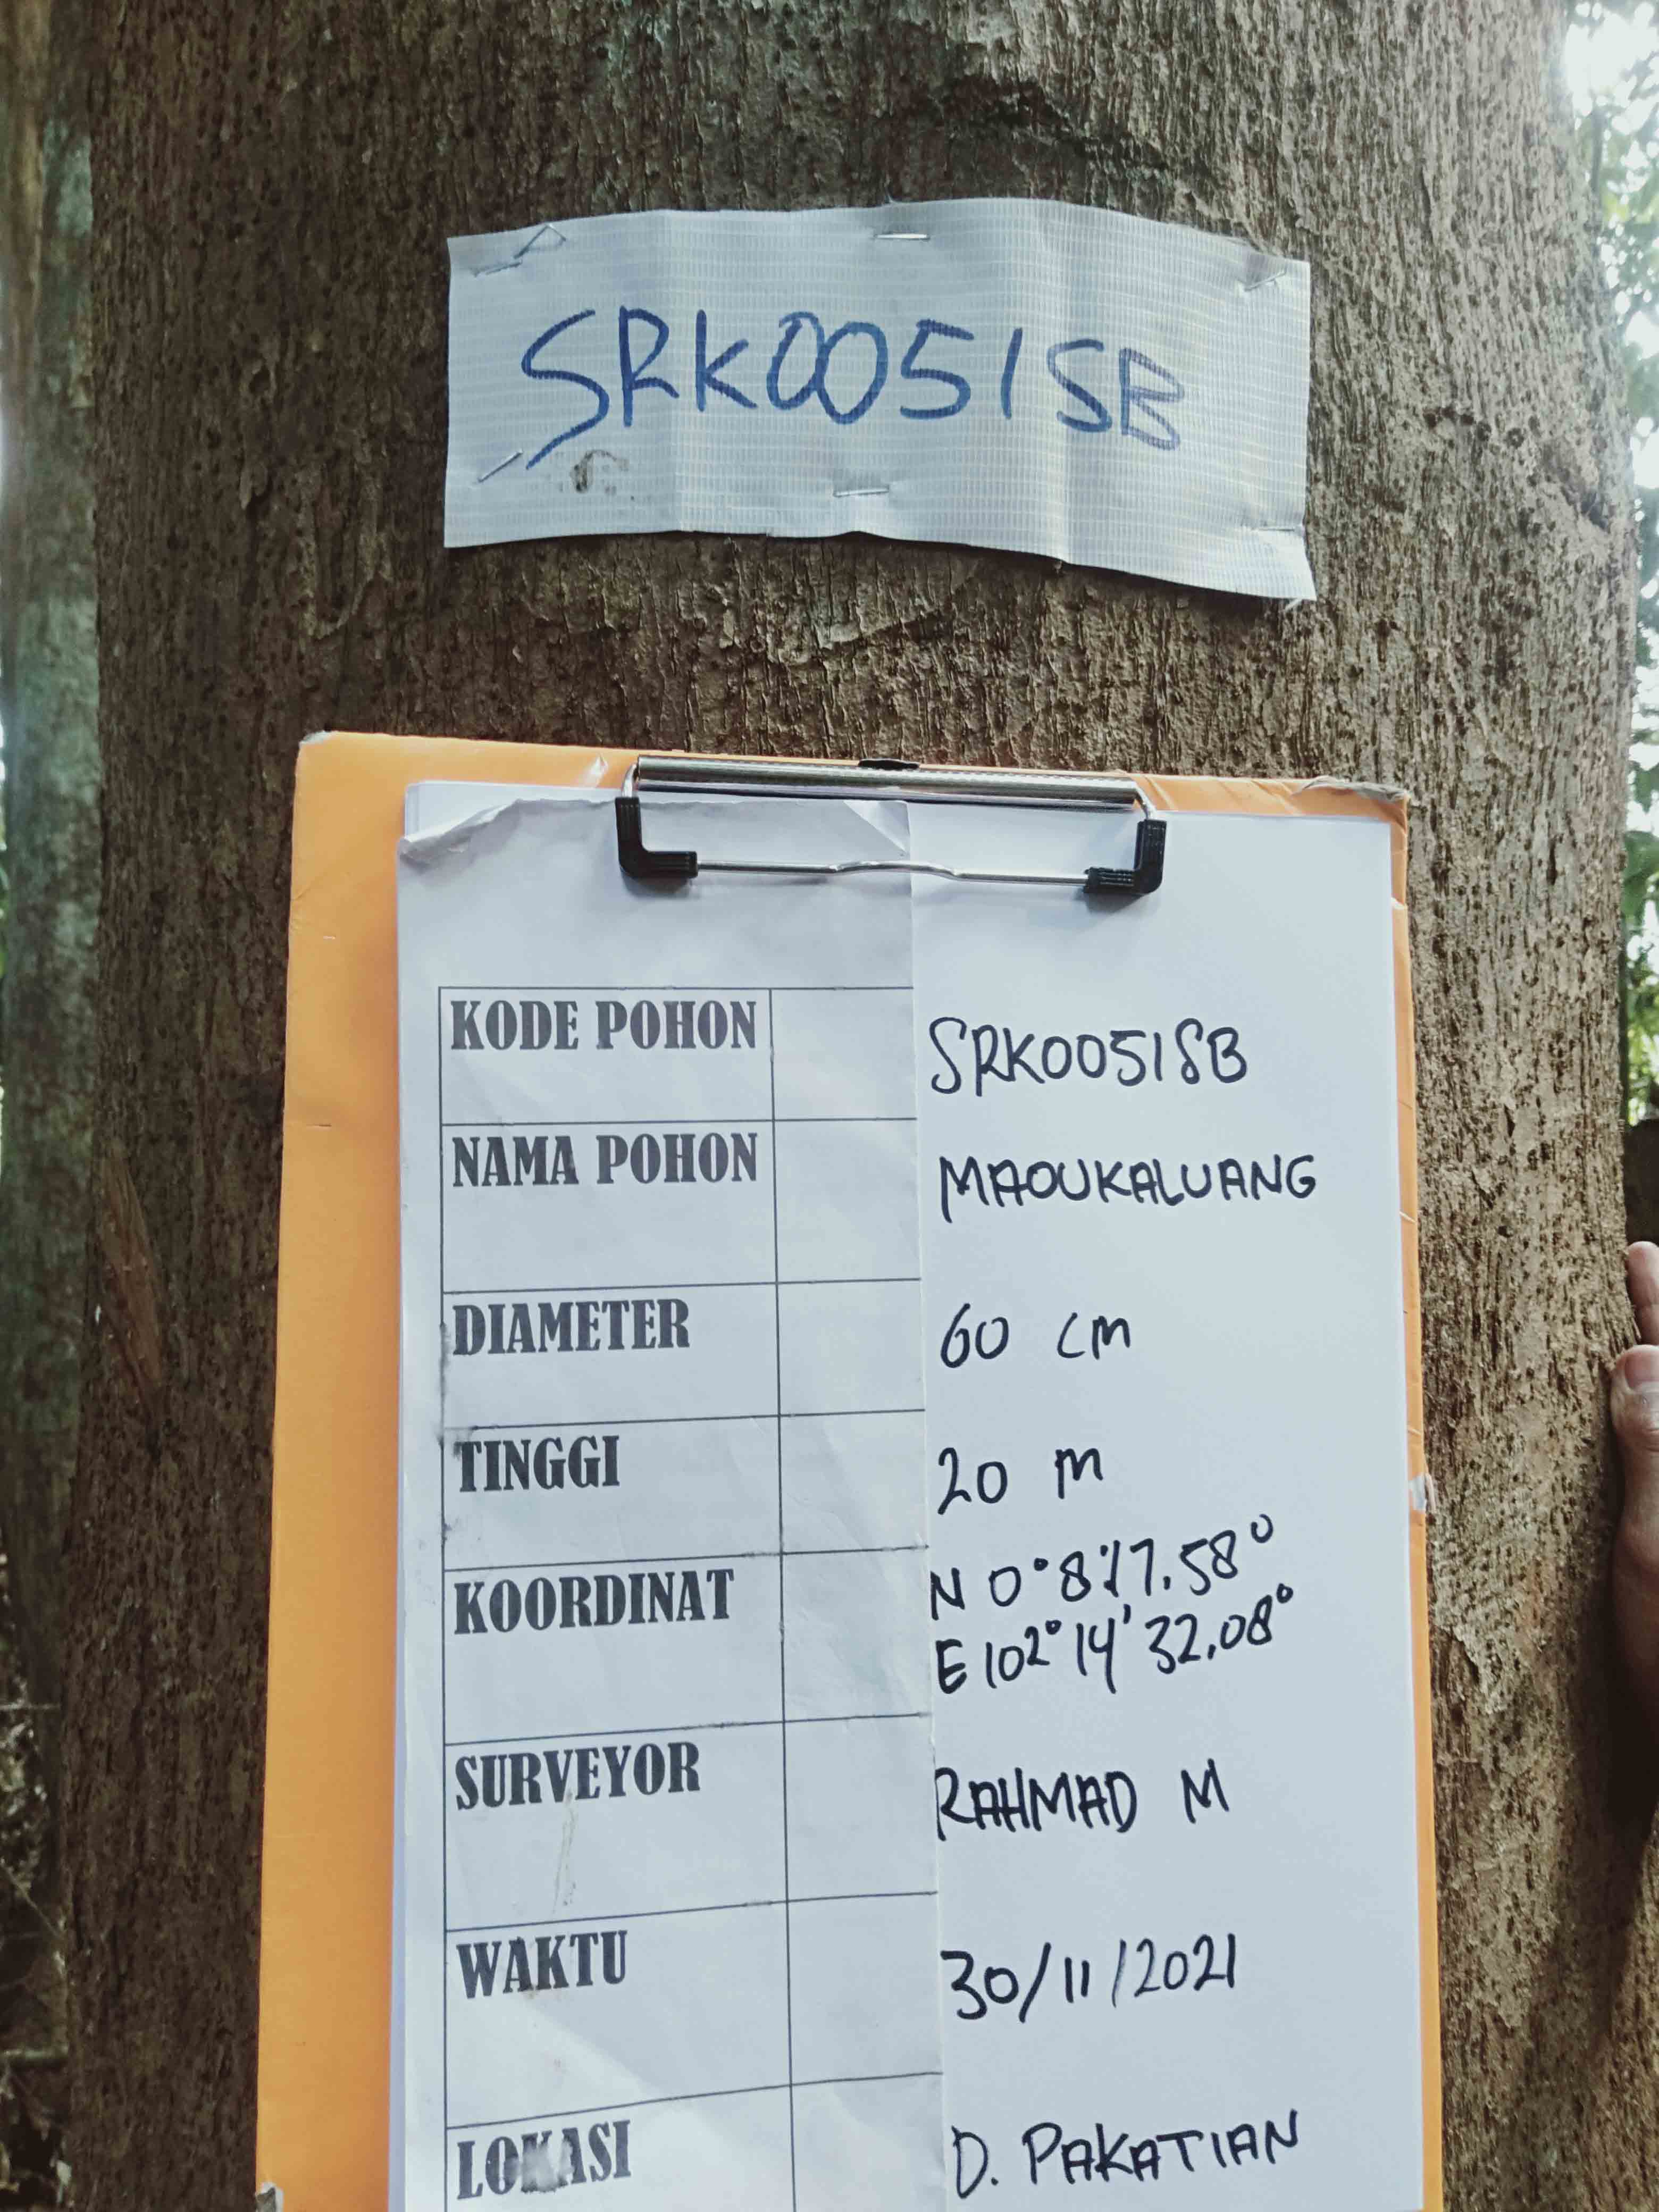 SRK0051SB
KODE POHON SRK0051SB
NAMA POHON MAOUKALUANG
DIAMETER 60 CM
TINGGI 20 M
KOORDINAT N 0°8'17.58°
E 102°14'32.08°
SURVEYOR RAHMAD M
WAKTU 30/11/2021
LOKASI D. PAKATIAN